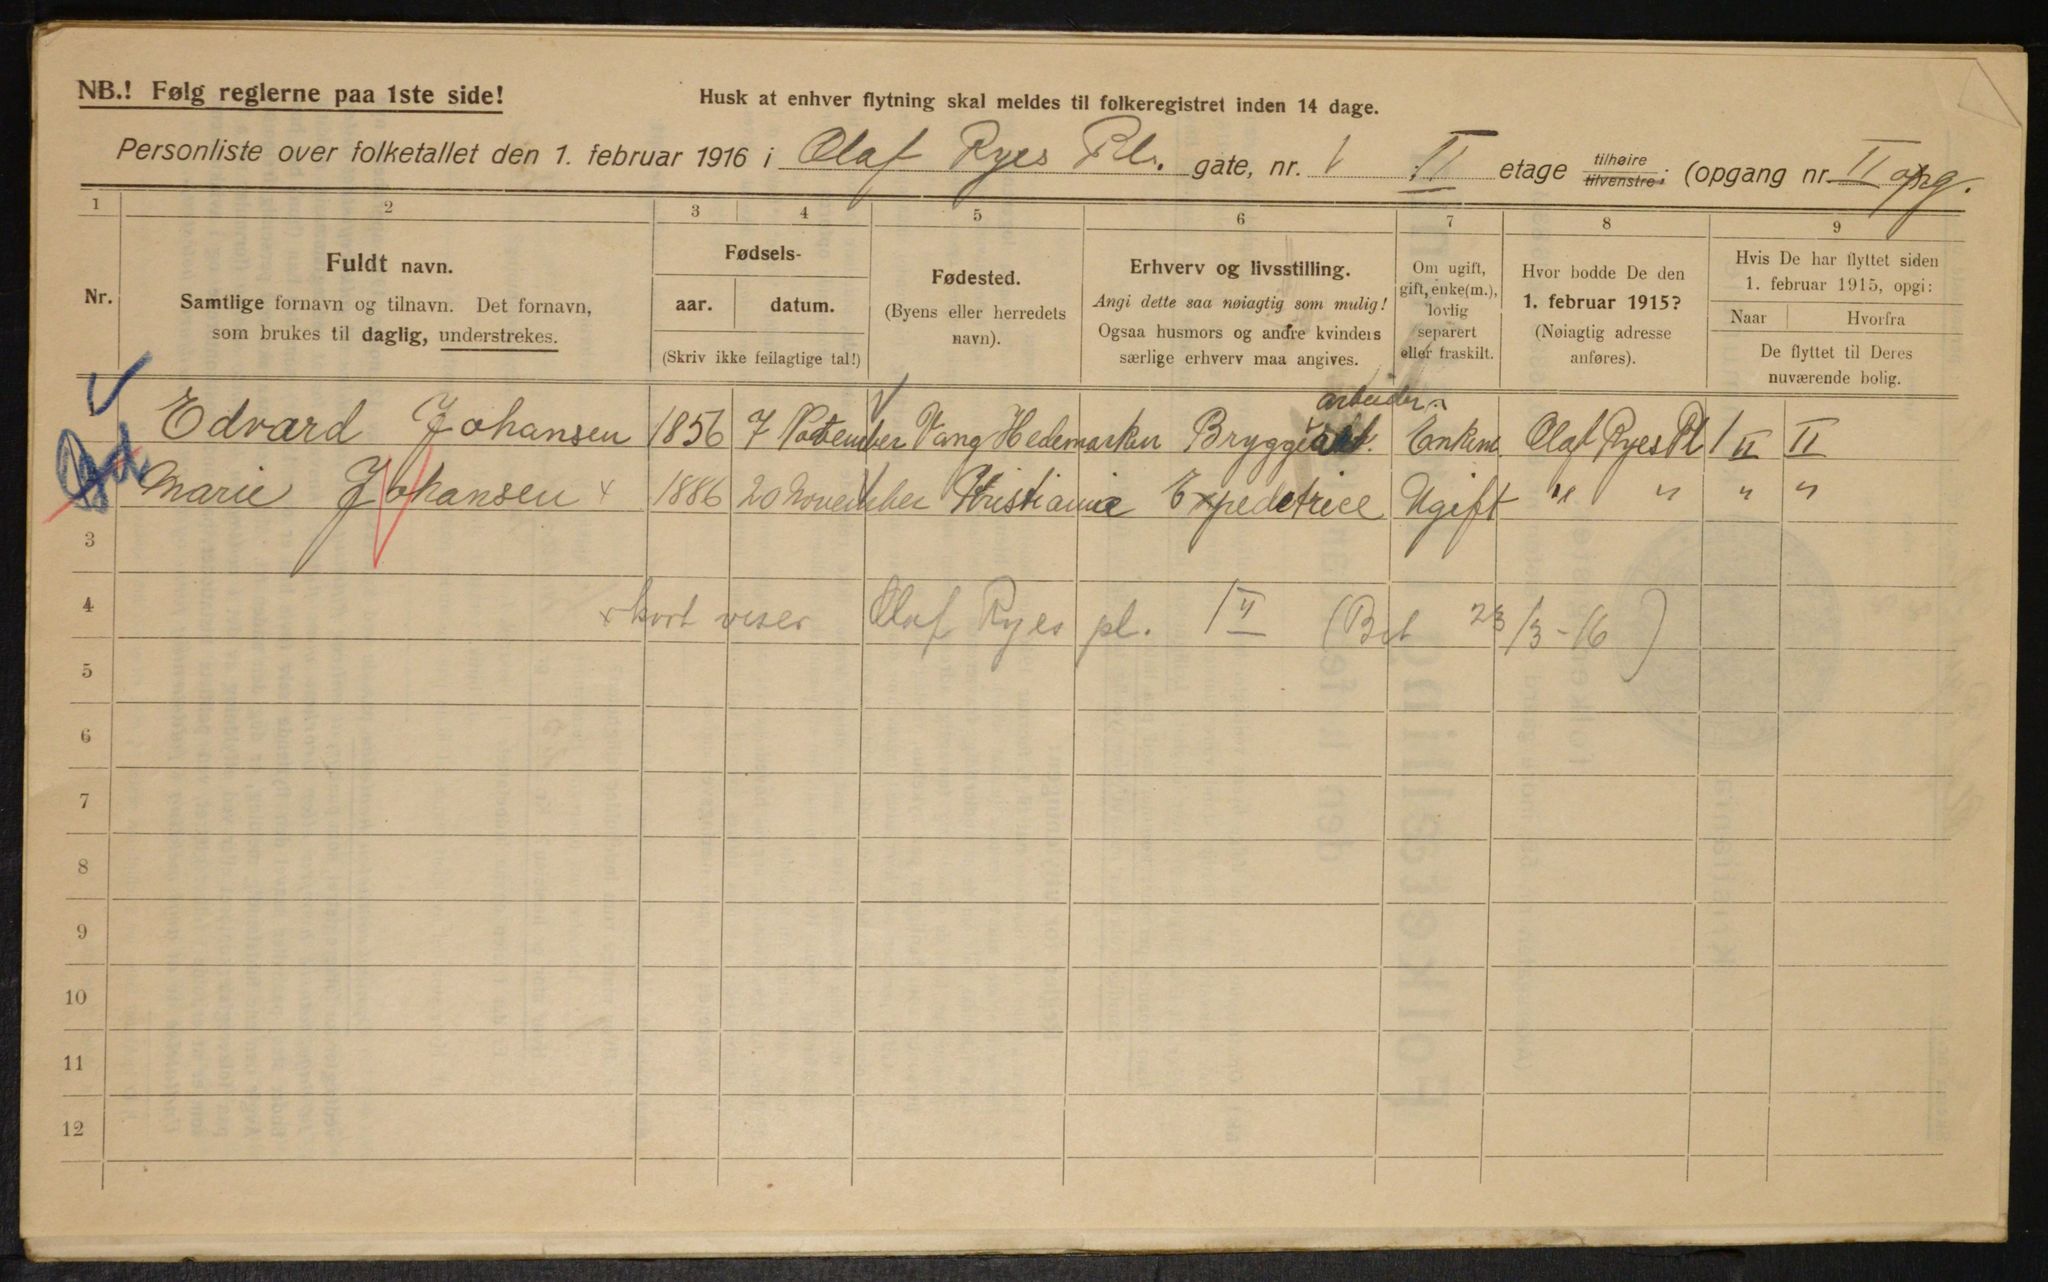 NB.! Følg reglerne paa 1ste side!
Husk at enhver flytning skal meldes til folkeregistret inden 14 dage.
Personliste over folketallet den 1. februar 1916 i Olaf Ryes Pl. gate, nr. 1 II etage tilhøire tilvenstre; (opgang nr. II opg.
1 2 3 4 5 6 7 8 9
Nr.
Fuldt navn.
Samtlige fornavn og tilnavn. Det fornavn,
som brukes til daglig, understrekes.
Fødsels-
aar. datum.
(Skriv ikke feilagtige tal!)
Fødested.
(Byens eller herredets
navn).
Erhverv og livsstilling.
Angi dette saa nøiagtig som mulig!
Ogsaa husmors og andre kvinders
særlige erhverv maa angives.
Om ugift,
gift, enke(m.),
lovlig
separert
eller fraskilt.
Hvor bodde De den
1. februar 1915?
(Nøiagtig adresse
anføres).
Hvis De har flyttet siden
1. februar 1915, opgi:
Naar Hvorfra
De flyttet til Deres
nuværende bolig.
arbeider
Edvard Johansen 1856 7 November Vang Hedemarken Bryggeriarb. Enkem. Olaf Ryes Pl 1 II II
Marie Johansen x 1886 20 November Kristiania Expeditrice Ugift " " " "
3
4 x kort viser Olaf Ryes pl. 1 II (Bet 23/3-16)
5
6
7
8
9
10
11
12